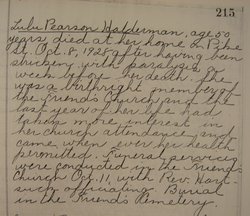 215
Lulu Pearson Halderman, age 50
years died at her home on Pike
St. Oct. 8, 1928 after having been
stricken with paralysis a
week before her death. She
was a birthright member of
the Friends Church and the
last year of her life had
taken more interest in
her church attendance and
came when ever her health
permitted. Funeral services
were conducted in the Friends
Church Oct. 11, with Rev.
officiating. Burial
in the Friends Cemetery.